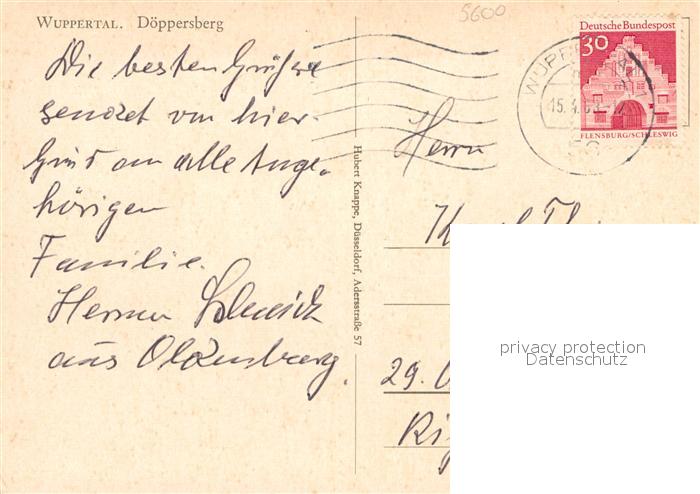 WUPPERTAL. Döppersberg
5600
Die besten Grüße
sendet von hier
Gruß an alle Ange-
hörigen
Familie.
Herman
aus Oldenburg.
Hubert Knappe, Düsseldorf, Adersstraße 57
Deutsche Bundespost
30
FLENSBURG/SCHLESWIG
WUPPERTAL
15.4.
56
Herrn
29.
privacy protection
Datenschutz